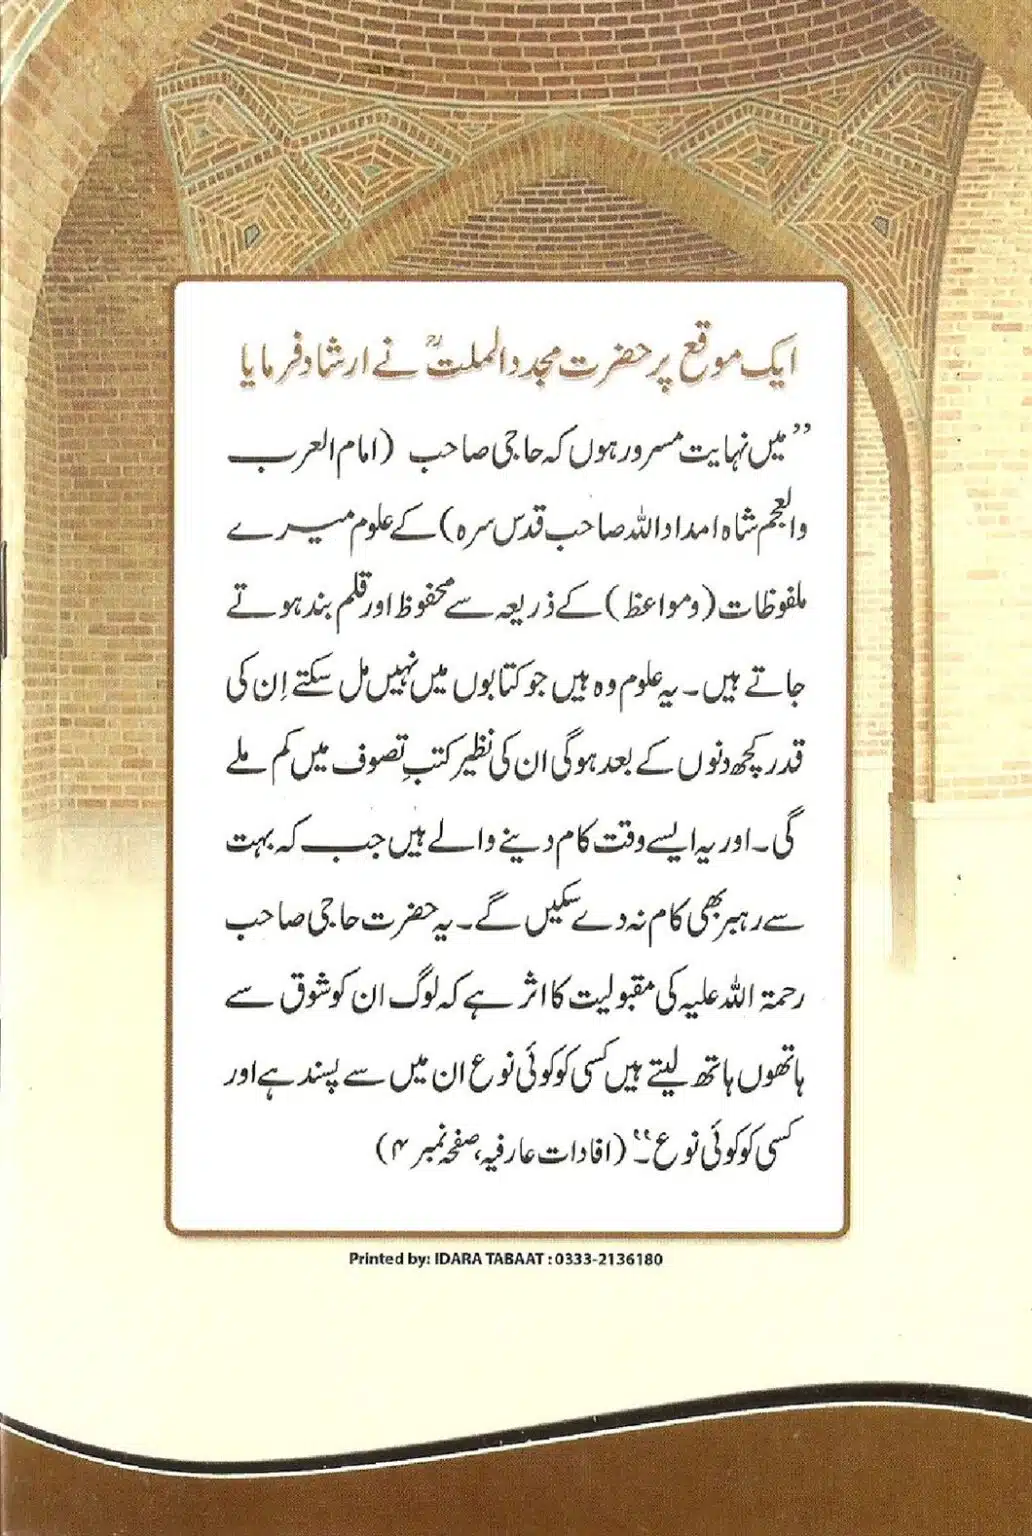 ایک موقع پر حضرت مجدد الملتؒ نے ارشاد فرمایا
”میں نہایت مسرور ہوں کہ حاجی صاحب (امام العرب
والعجم شاہ امداد اللہ صاحب قدس سرہ) کے علوم میرے
ملفوظات (ومواعظ) کے ذریعہ سے محفوظ اور قلم بند ہوتے
جاتے ہیں۔ یہ علوم وہ ہیں جو کتابوں میں نہیں مل سکتے اِن کی
قدر کچھ دنوں کے بعد ہوگی ان کی نظیر کتبِ تصوف میں کم ملے
گی۔ اور یہ ایسے وقت کام دینے والے ہیں جب کہ بہت
سے رہبر بھی کام نہ دے سکیں گے۔ یہ حضرت حاجی صاحب
رحمۃ اللہ علیہ کی مقبولیت کا اثر ہے کہ لوگ ان کو شوق سے
ہاتھوں ہاتھ لیتے ہیں کسی کو کوئی نوع ان میں سے پسند ہے اور
کسی کو کوئی نوع۔“ (افادات عارفیہ، صفحہ نمبر ۴)
Printed by: IDARA TABAAT : 0333-2136180